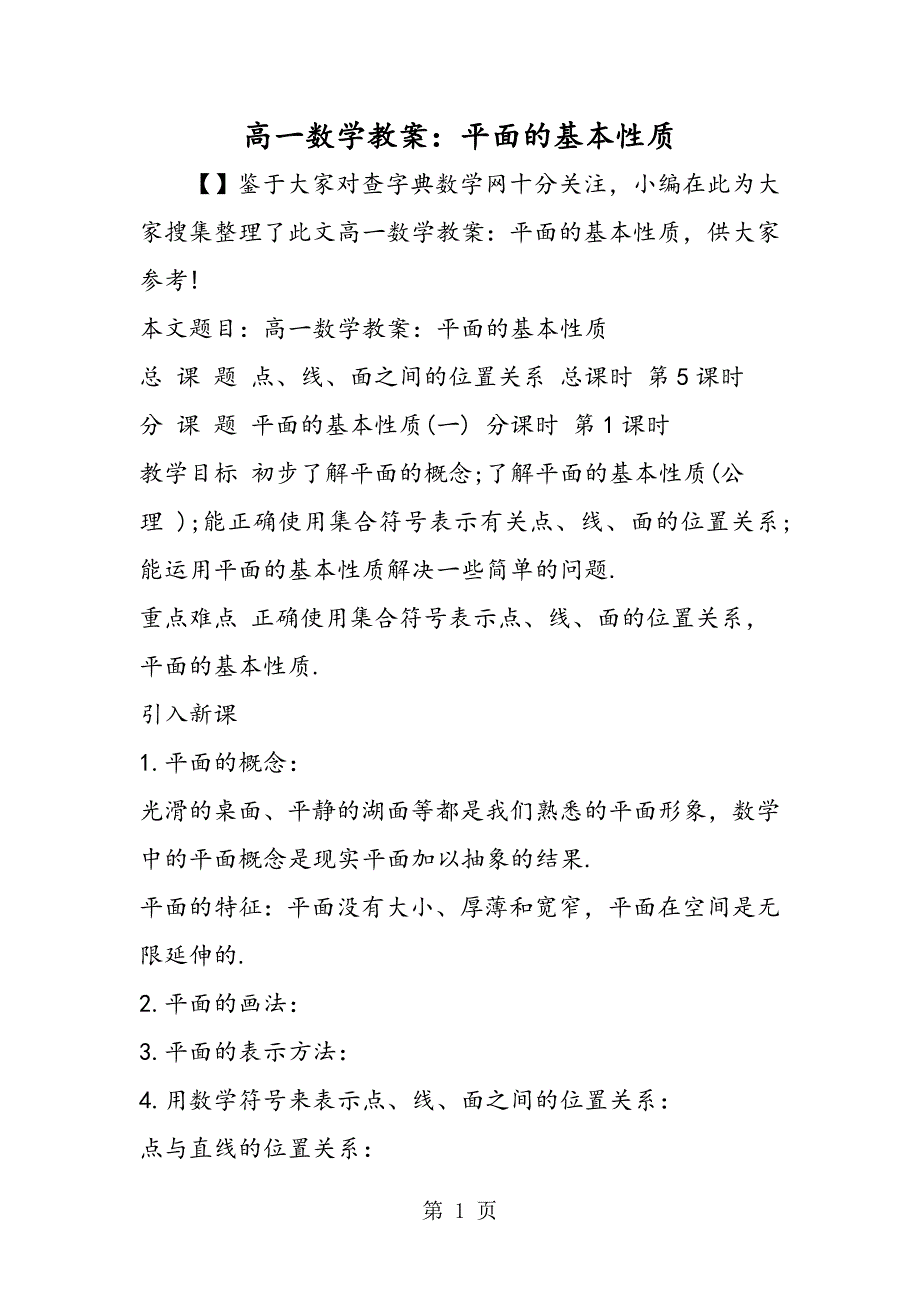 高一数学教案：平面的基本性质
【】鉴于大家对查字典数学网十分关注，小编在此为大
家搜集整理了此文高一数学教案：平面的基本性质，供大家
参考!
本文题目：高一数学教案：平面的基本性质
总 课 题 点、线、面之间的位置关系 总课时 第5课时
分 课 题 平面的基本性质(一) 分课时 第1课时
教学目标 初步了解平面的概念;了解平面的基本性质(公
理 );能正确使用集合符号表示有关点、线、面的位置关系;
能运用平面的基本性质解决一些简单的问题.
重点难点 正确使用集合符号表示点、线、面的位置关系，
平面的基本性质.
引入新课
1.平面的概念：
光滑的桌面、平静的湖面等都是我们熟悉的平面形象，数学
中的平面概念是现实平面加以抽象的结果.
平面的特征：平面没有大小、厚薄和宽窄，平面在空间是无
限延伸的.
2.平面的画法：
3.平面的表示方法：
4.用数学符号来表示点、线、面之间的位置关系：
点与直线的位置关系：
第 1 页